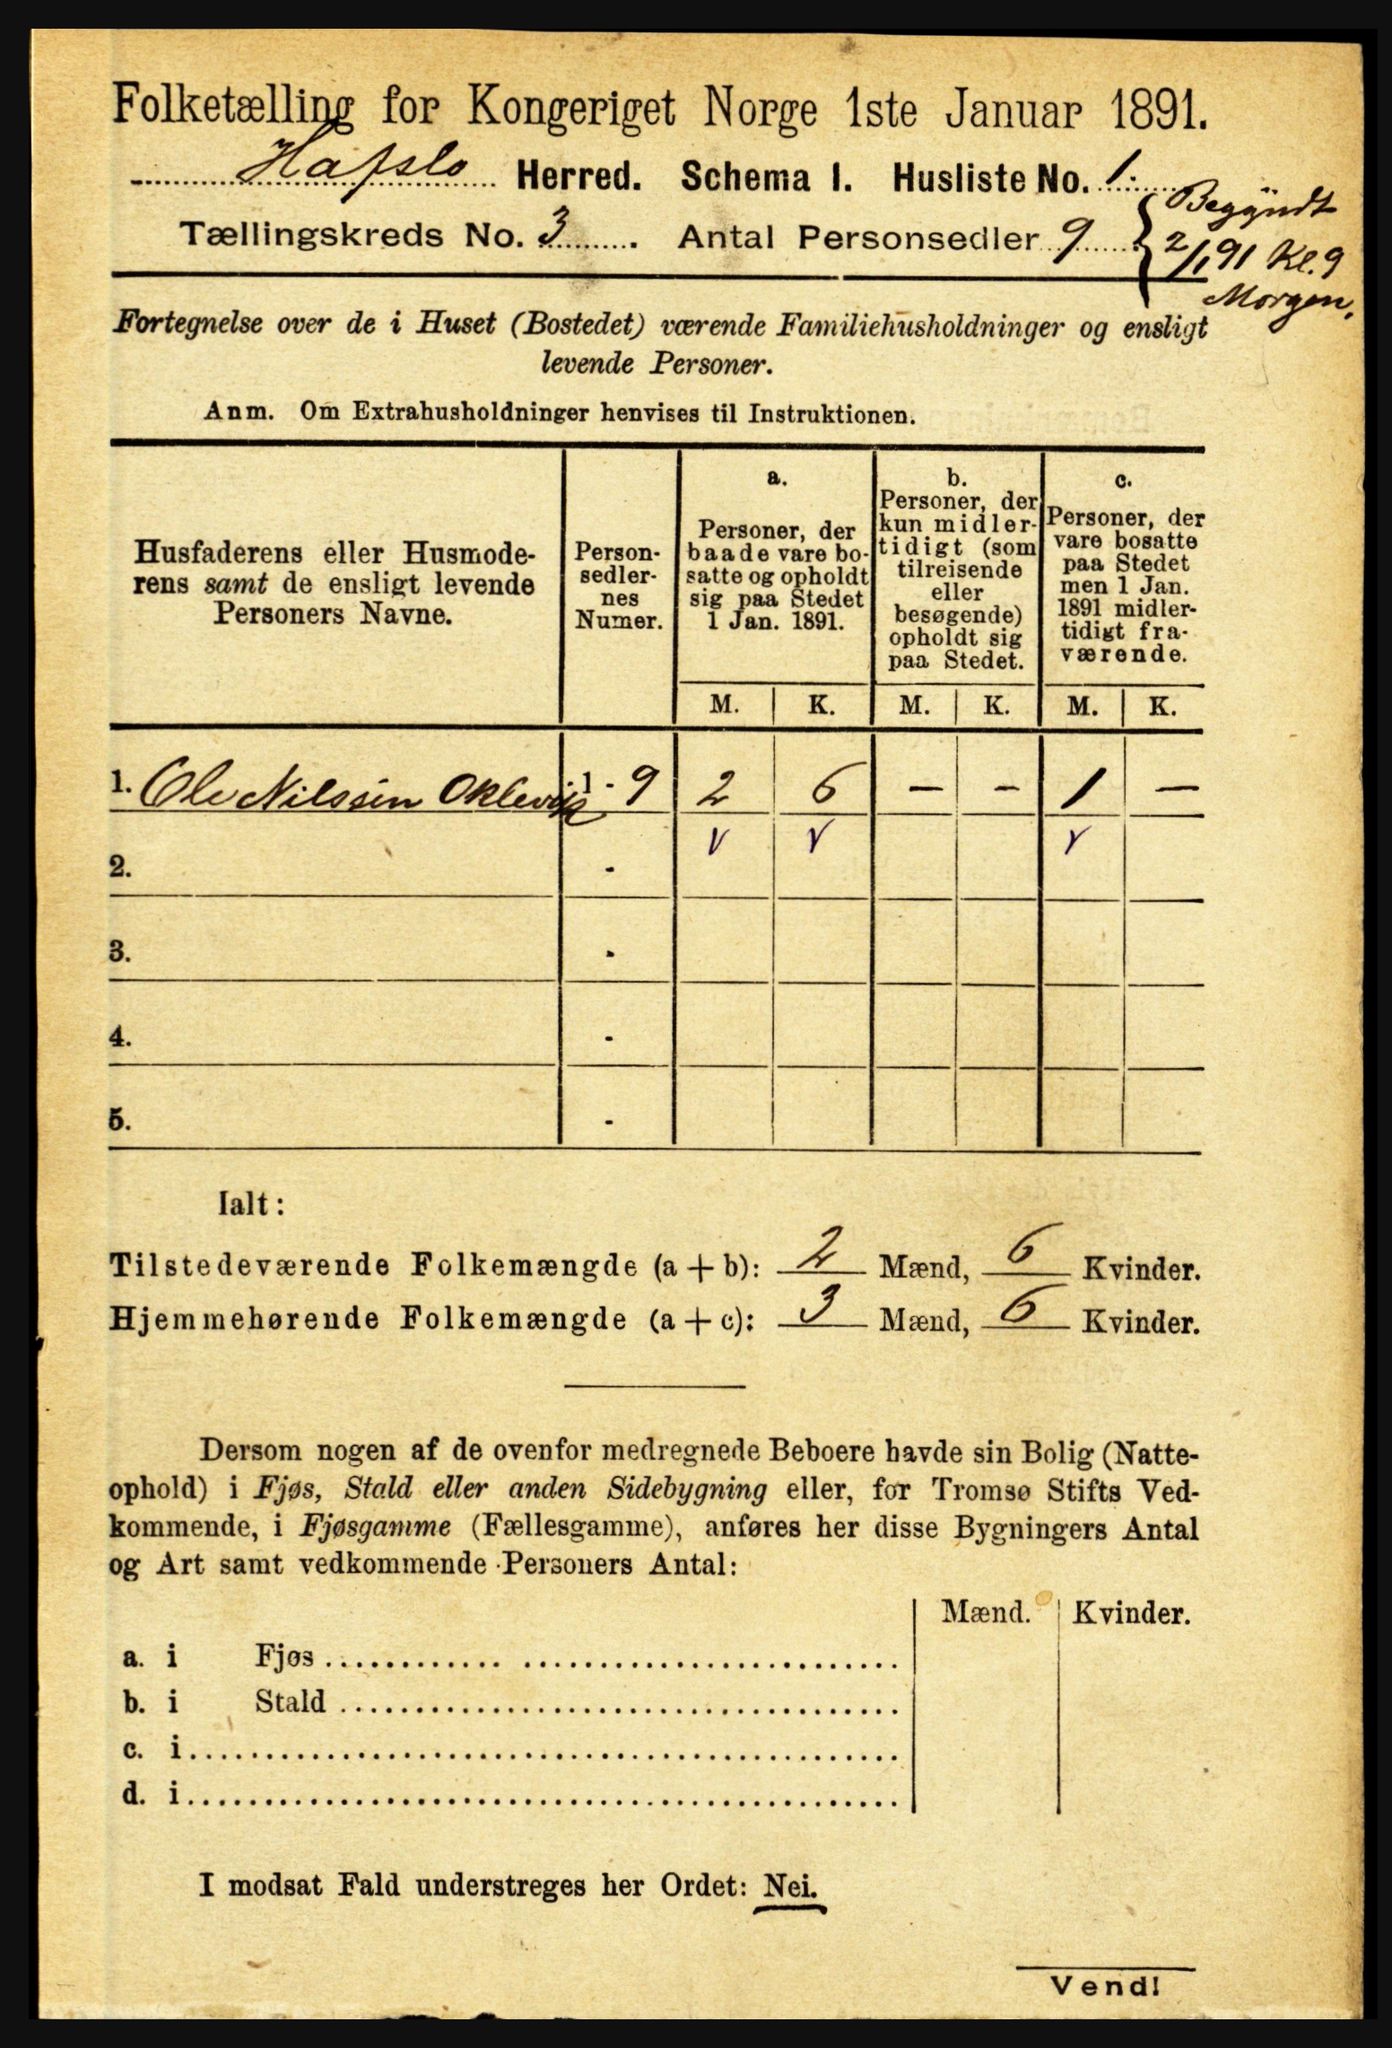 Folketælling for Kongeriget Norge 1ste Januar 1891.
Hafslo Herred. Schema I. Husliste No. 1.
Tællingskreds No. 3. Antal Personsedler 9.
Begyndt
2/1 91 Kl. 9
Morgen.
Fortegnelse over de i Huset (Bostedet) værende Familiehusholdninger og ensligt
levende Personer.
Anm. Om Extrahusholdninger henvises til Instruktionen.
Husfaderens eller Husmode-
rens samt de ensligt levende
Personers Navne.
Person-
sedler-
nes
Numer.
a.
Personer, der
baade vare bo-
satte og opholdt
sig paa Stedet
1 Jan. 1891.
b.
Personer, der
kun midler-
tidigt (som
tilreisende
eller
besøgende)
opholdt sig
paa Stedet.
c.
Personer, der
vare bosatte
paa Stedet
men 1 Jan.
1891 midler-
tidigt fra-
værende.
M. K. M. K. M. K.
1. Ole Nilssen Oklevik 1 - 9 2 6 — - 1 —
v v v
2. -
3. -
4. -
5. -
Ialt:
Tilstedeværende Folkemængde (a + b): 2 Mænd, 6 Kvinder.
Hjemmehørende Folkemængde (a + c): 3 Mænd, 6 Kvinder.
Dersom nogen af de ovenfor medregnede Beboere havde sin Bolig (Natte-
ophold) i Fjøs, Stald eller anden Sidebygning eller, for Tromsø Stifts Ved-
kommende, i Fjøsgamme (Fællesgamme), anføres her disse Bygningers Antal
og Art samt vedkommende Personers Antal:
Mænd. Kvinder.
a. i Fjøs
b. i Stald
c. i
d. i
I modsat Fald understreges her Ordet: Nei.
Vend!